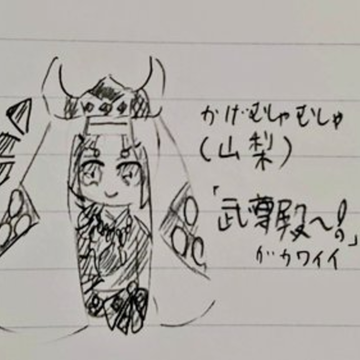 かげむしゃむしゃ
(山梨)
「武尊殿〜!。」
がカワイイ